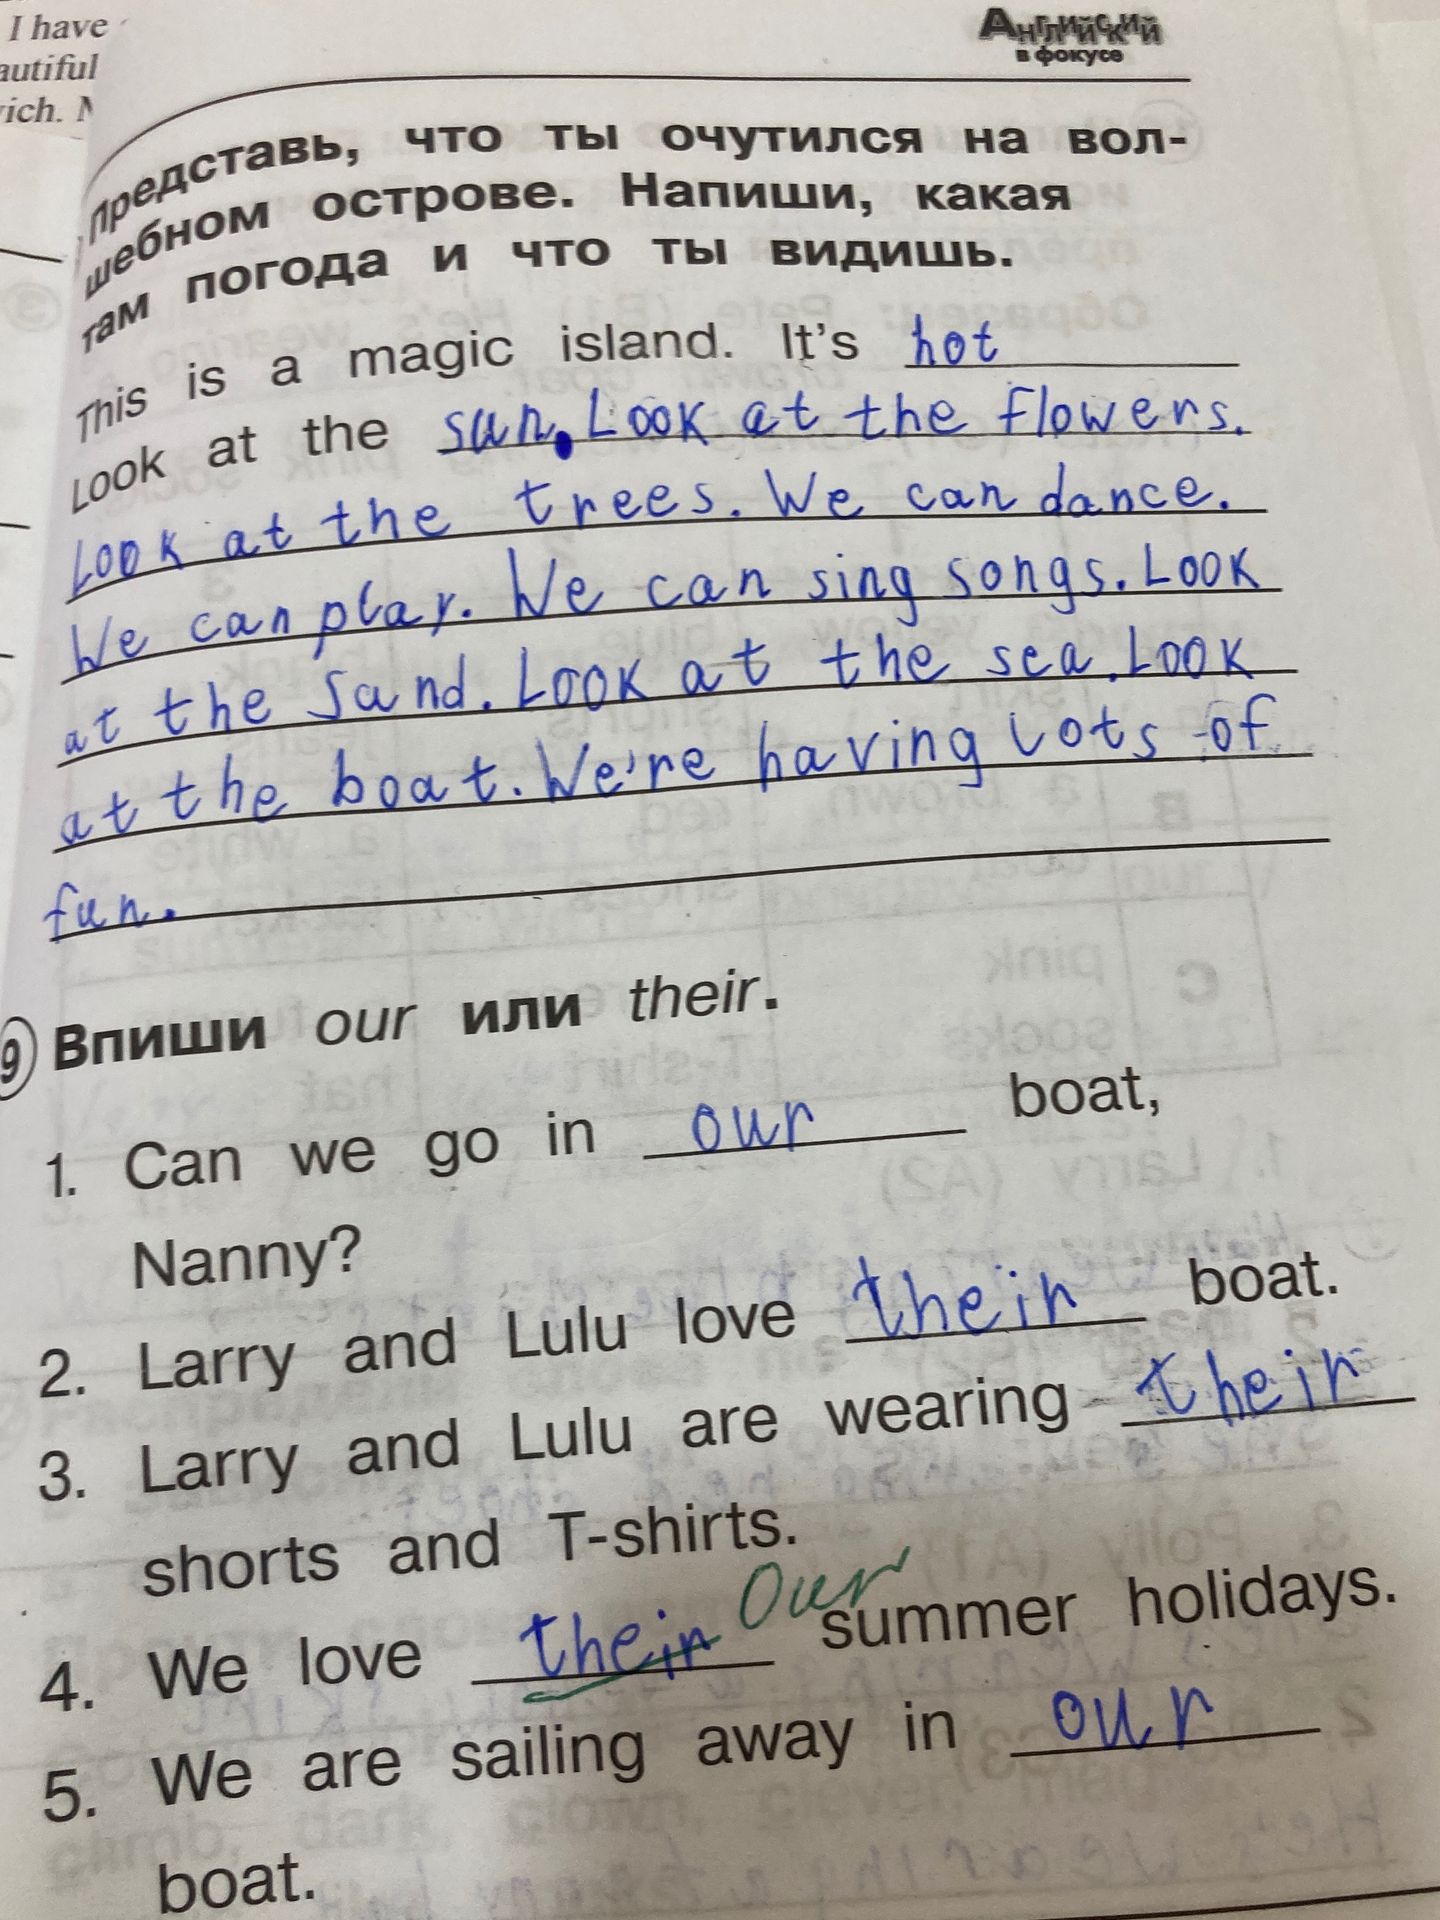 I have
autiful
ich.
Английский
в фокусе
Представь, что ты очутился на вол-
шебном острове. Напиши, какая
там погода и что ты видишь.
This is a magic island. It's hot
Look at the sun. Look at the flowers.
Look at the trees. We can dance.
We can play. We can sing songs. Look
at the sand. Look at the sea. Look
at the boat. We're having lots of
fun.
9 Впиши our или their.
1. Can we go in our boat,
Nanny?
2. Larry and Lulu love their boat.
3. Larry and Lulu are wearing their
shorts and T-shirts.
4. We love their Our summer holidays.
5. We are sailing away in our
boat.